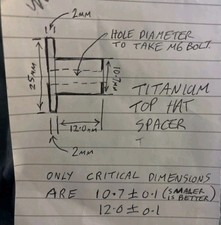 2mm
HOLE DIAMETER
TO TAKE M6 BOLT.
25mm
10.7mm
TITANIUM
TOP HAT
SPACER
12.0mm
2mm
ONLY CRITICAL DIMENSIONS
ARE 10.7 ± 0.1 (SMALLER
IS BETTER)
12.0 ± 0.1